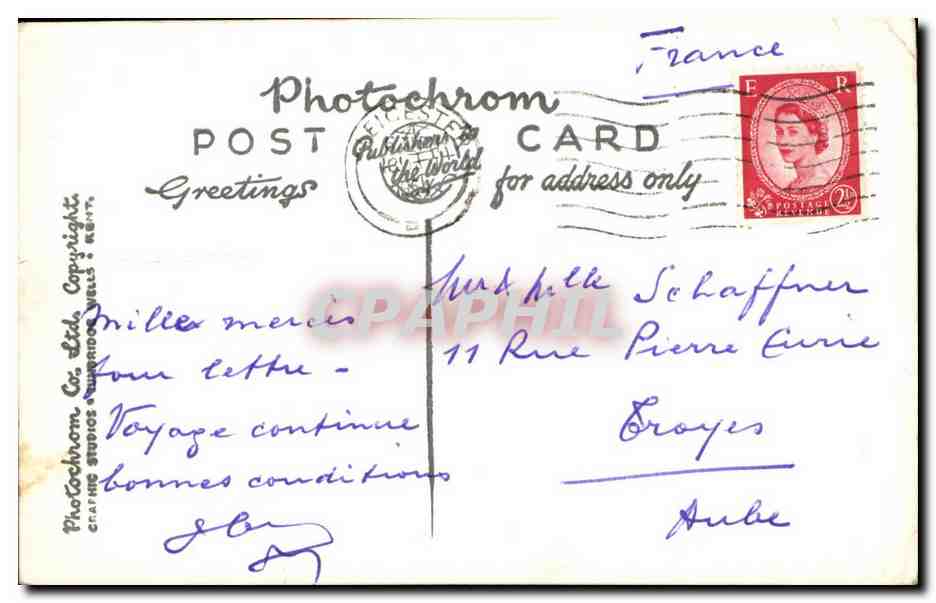 France
Photochrom
POST CARD
Publishers to
the World
Greetings for address only
E R
POSTAGE
REVENUE
2½D
LEICESTER
Photochrom Co. Ltd. Copyright.
GRAPHIC STUDIOS • TUNBRIDGE WELLS • KENT.
CPAPHIL
Milles mercis
pour lettre -
Voyage continue
bonnes conditions
Schaffner
11 Rue Pierre Curie
Troyes
Aube